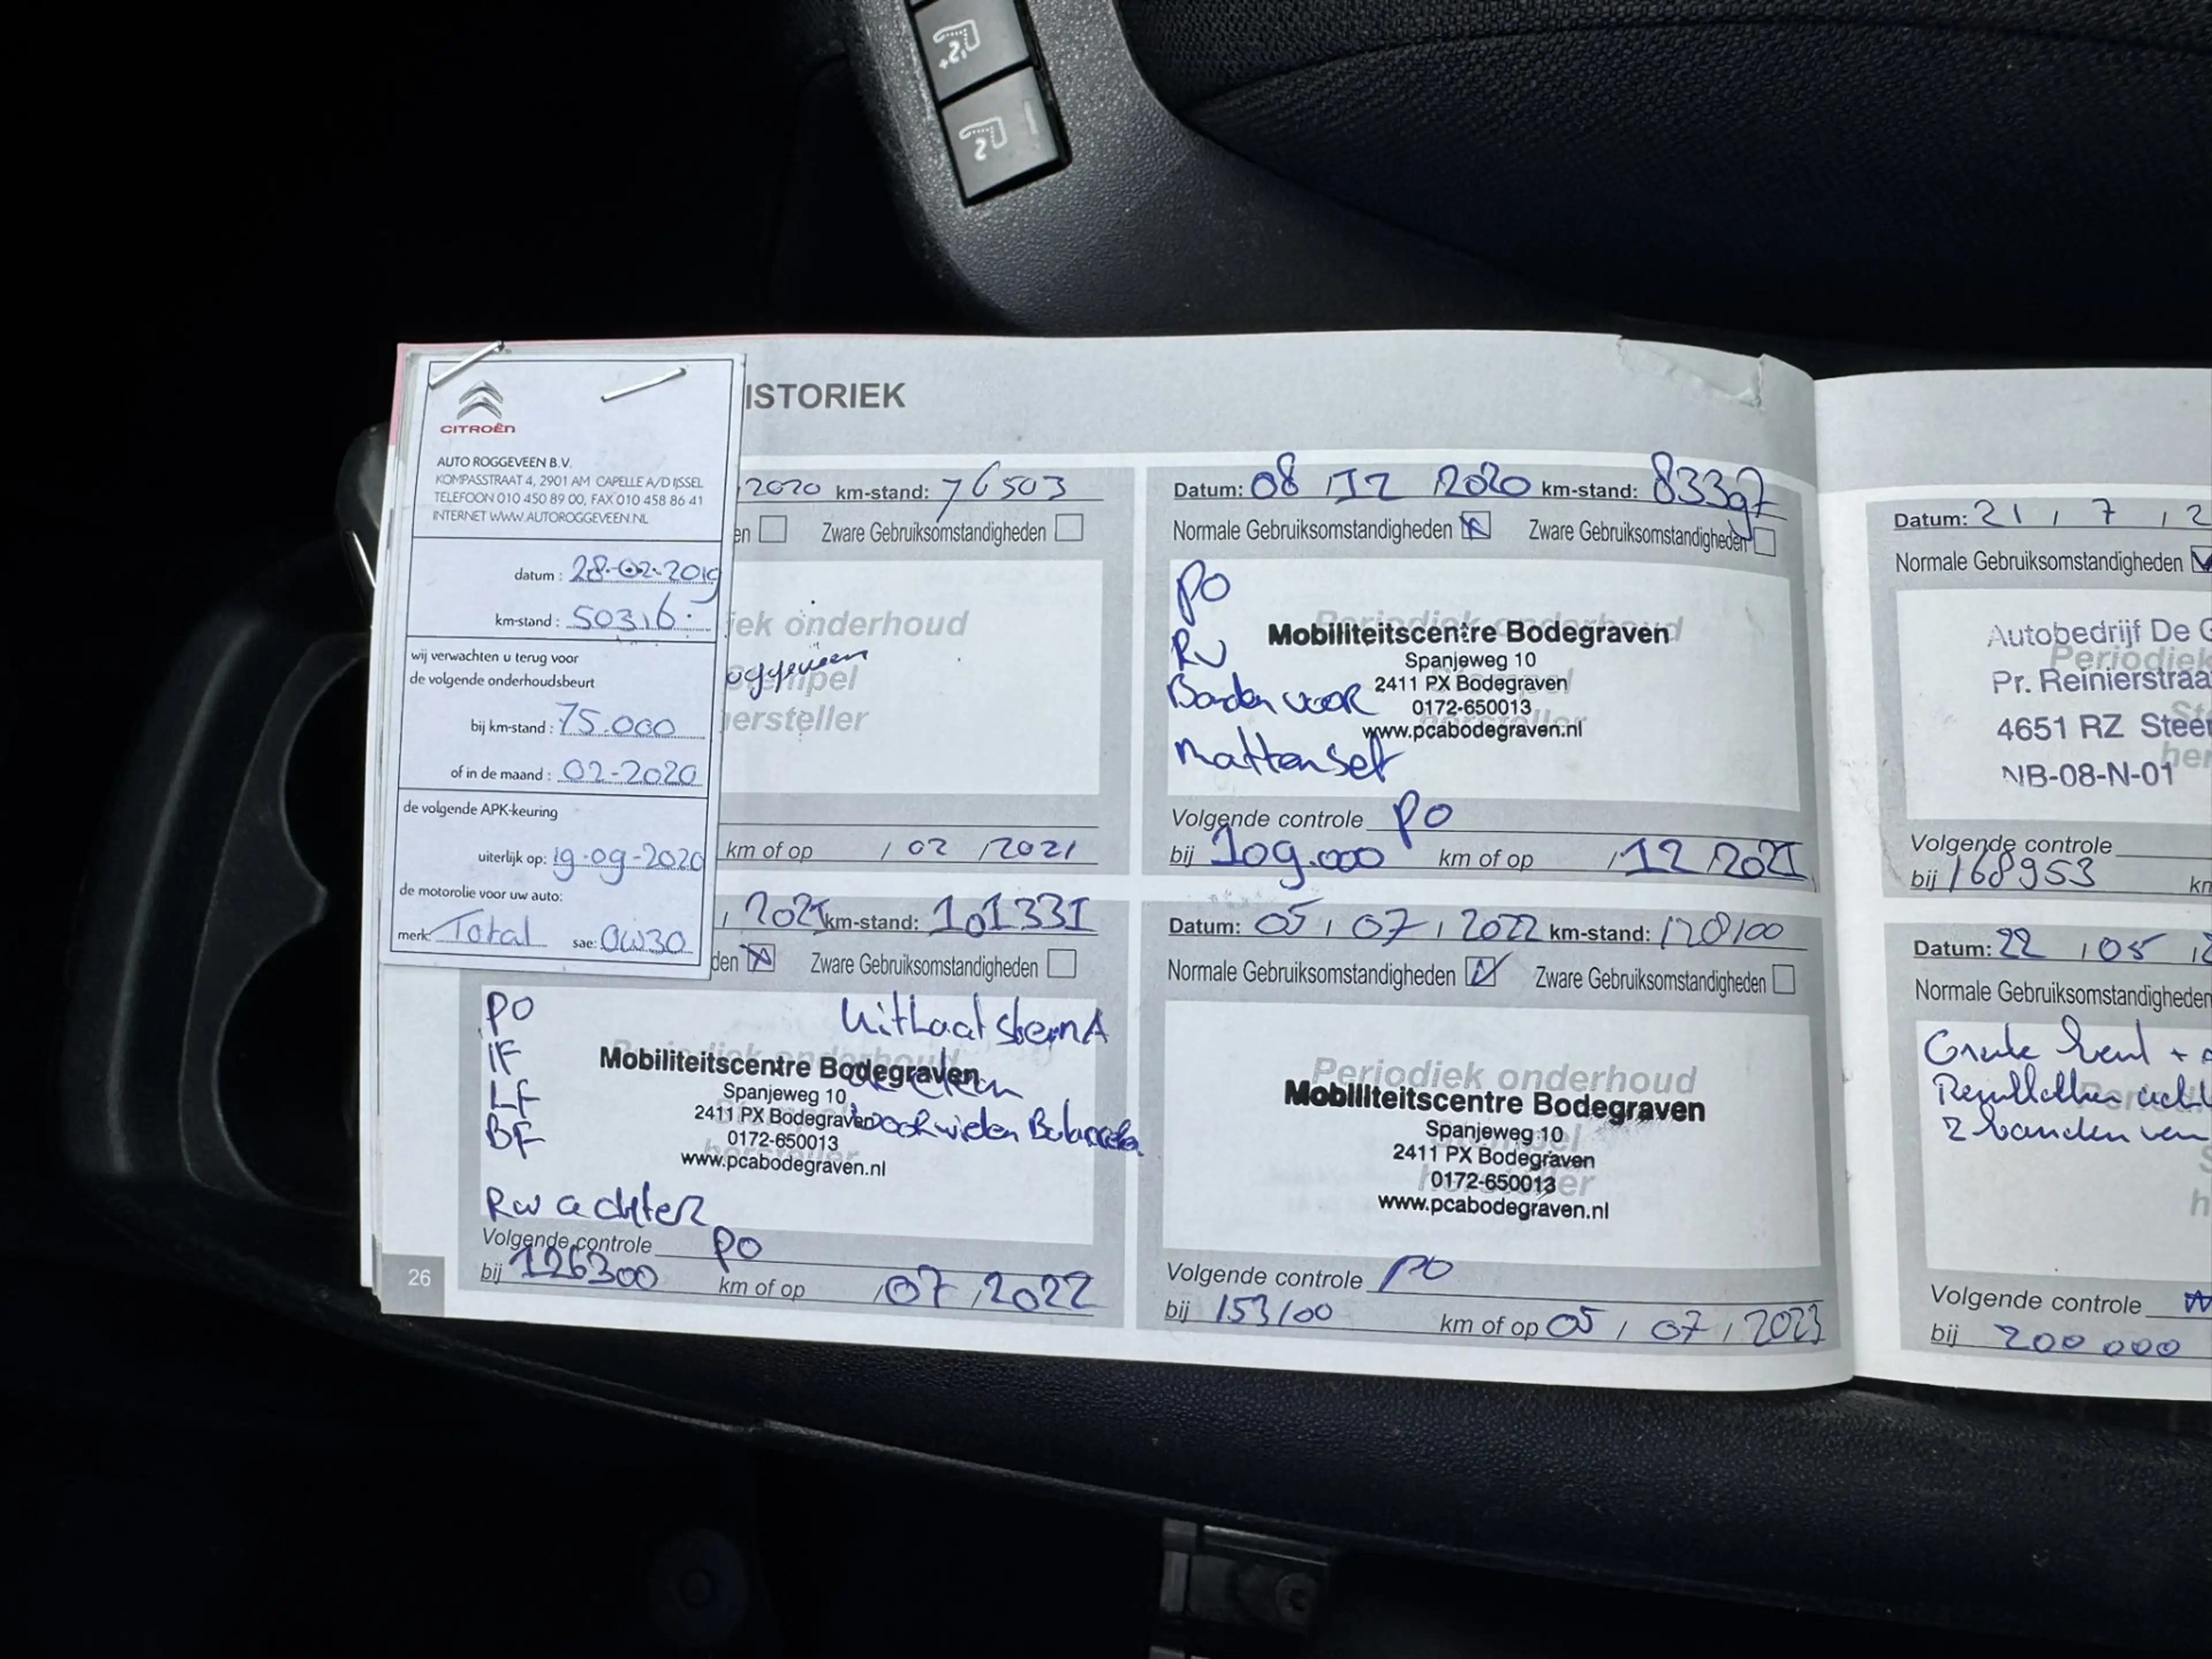 CITROËN
AUTO ROGGEVEEN B.V.
KOMPASSTRAAT 4, 2901 AM CAPELLE A/D IJSSEL
TELEFOON 010 450 89 00, FAX 010 458 86 41
INTERNET WWW.AUTOROGGEVEEN.NL
datum : 28-02-2019
km-stand : 50316
wij verwachten u terug voor
de volgende onderhoudsbeurt
bij km-stand : 75.000
of in de maand : 02-2020
de volgende APK-keuring
uiterlijk op: 19-09-2020
de motorolie voor uw auto:
merk: Total sae: 0W30
ISTORIEK
2020 km-stand: 76503
en Zware Gebruiksomstandigheden
iek onderhoud
oggeveen
mpel
hersteller
km of op / 02 / 2021
Datum: 08 / 12 / 2020 km-stand: 83397
Normale Gebruiksomstandigheden Zware Gebruiksomstandigheden
PO
Periodiek onderhoud
Mobiliteitscentre Bodegraven
Spanjeweg 10
2411 PX Bodegraven
0172-650013
www.pcabodegraven.nl
RV
Banden voor
mattenset
Volgende controle PO
bij 109.000 km of op / 12 / 2021
, 2021 km-stand: 101331
den Zware Gebruiksomstandigheden
PO
IF
LF
BF
Rw achter
Uitlaat
Periodiek onderhoud
Mobiliteitscentre Bodegraven
Spanjeweg 10
2411 PX Bodegraven
0172-650013
www.pcabodegraven.nl
Volgende controle PO
bij 126300 km of op / 07 / 2022
26
Datum: 05 / 07 / 2022 km-stand: 128100
Normale Gebruiksomstandigheden Zware Gebruiksomstandigheden
Periodiek onderhoud
Mobiliteitscentre Bodegraven
Spanjeweg 10
2411 PX Bodegraven
0172-650013
www.pcabodegraven.nl
Volgende controle PO
bij 153100 km of op 05 / 07 / 2023
Datum: 21 / 7 / 2
Normale Gebruiksomstandigheden
Autobedrijf De G
Periodiek
Pr. Reinierstraa
4651 RZ Steen
NB-08-N-01
Volgende controle
bij 168953 km
Datum: 22 / 05 / 2
Normale Gebruiksomstandigheden
2 banden
Volgende controle
bij 200 000